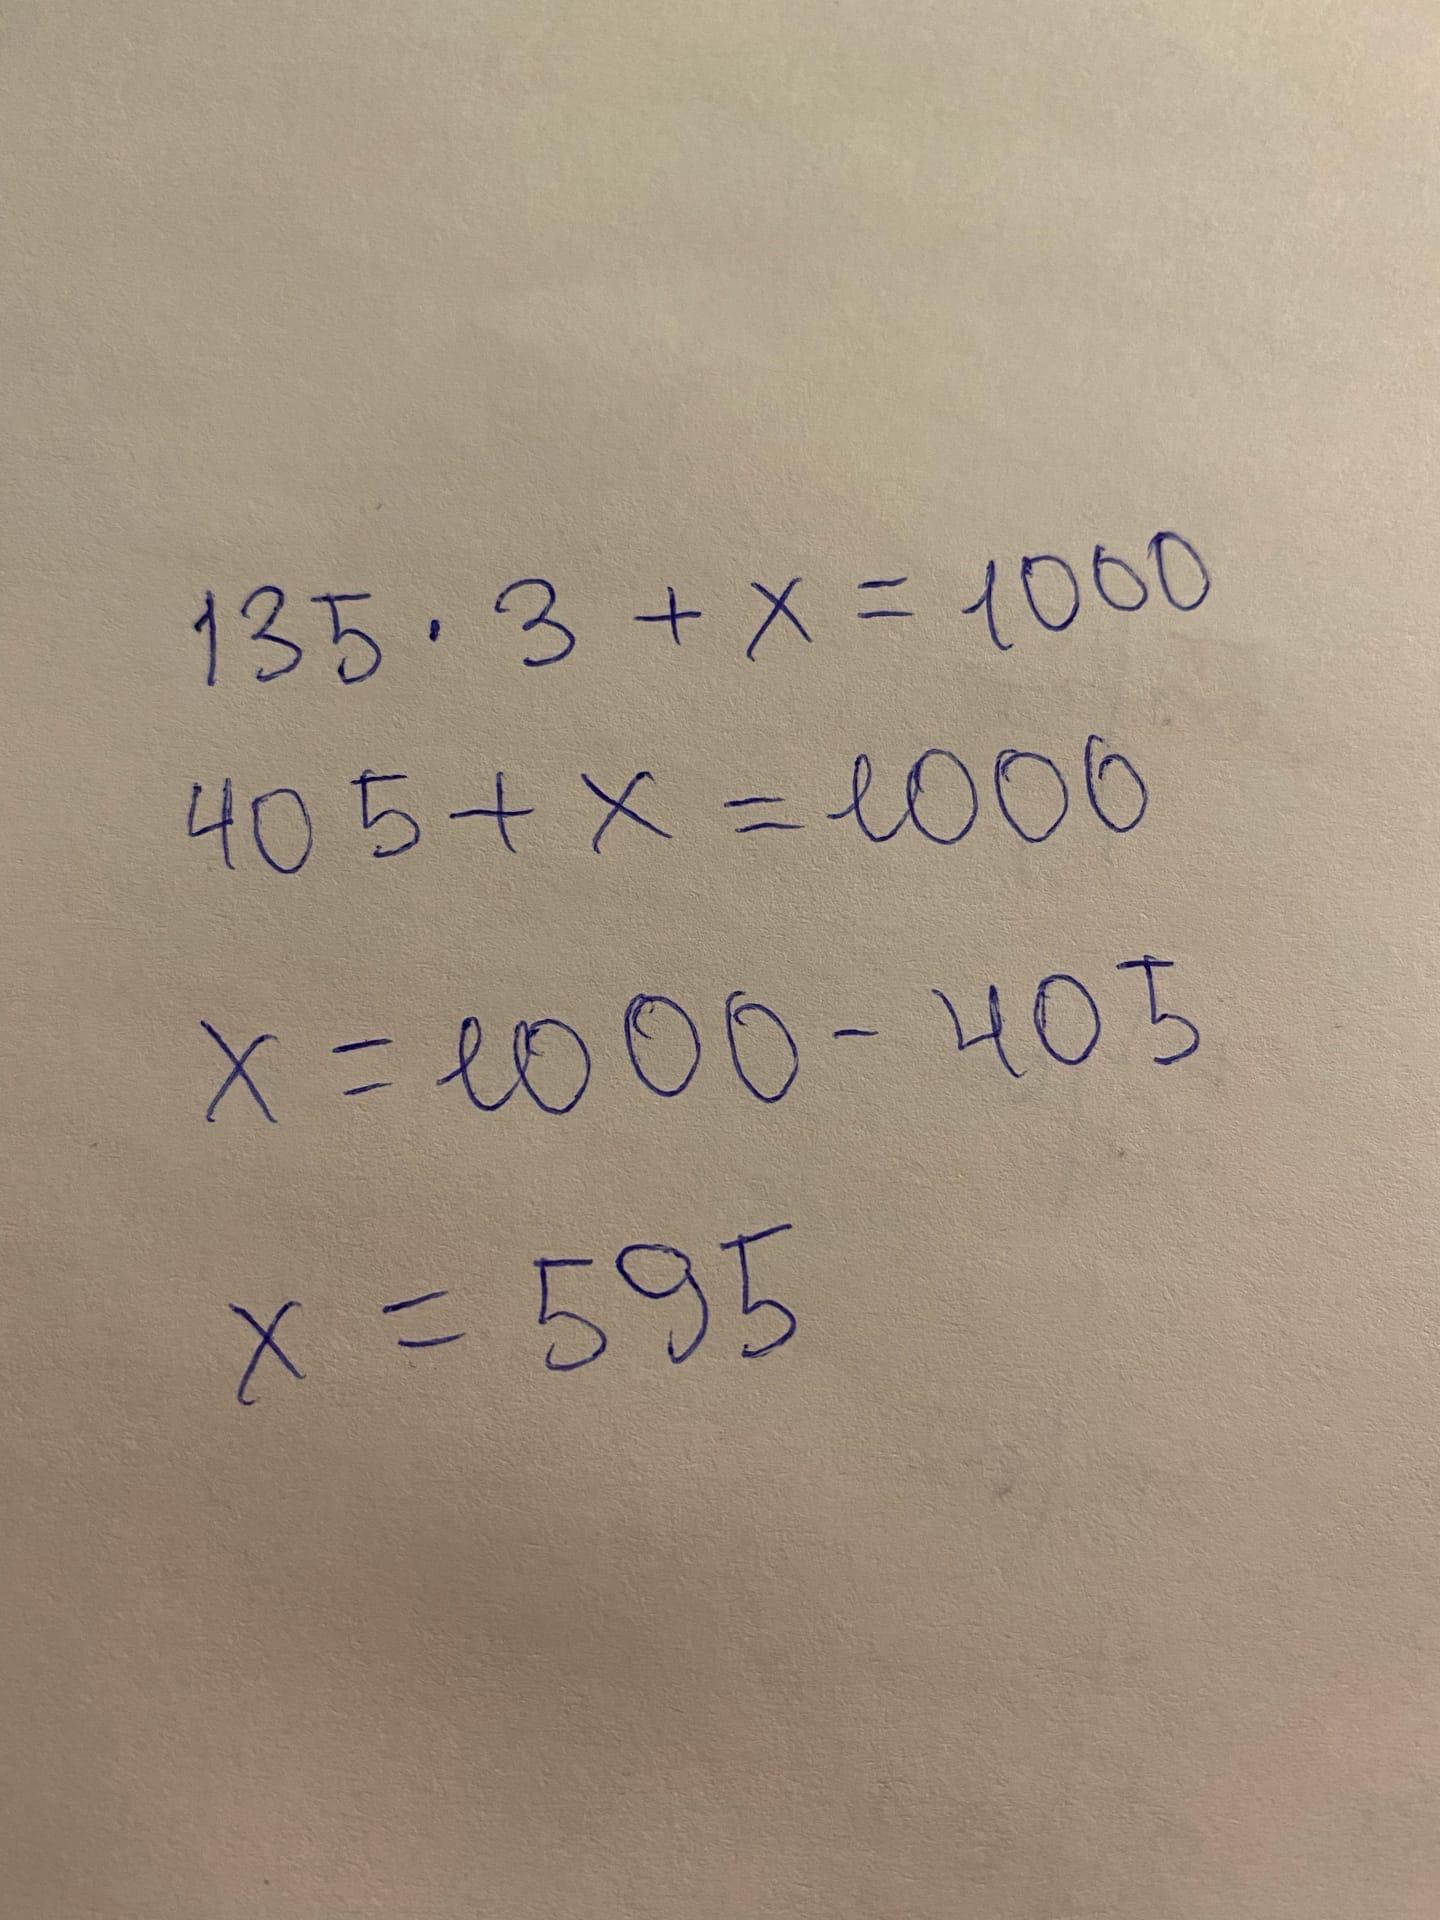 135 · 3 + x = 1000
405 + x = 1000
x = 1000 - 405
x = 595